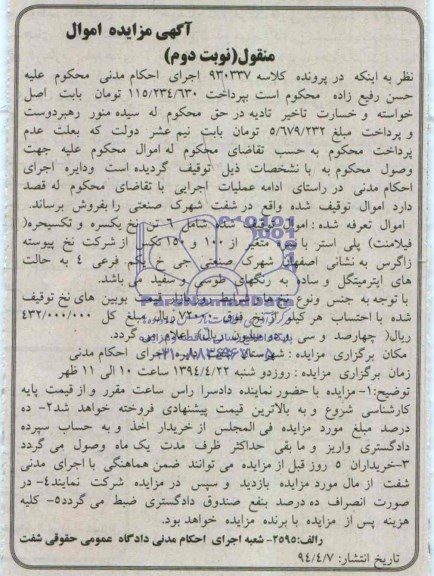 آگهی مزایده اموال
منقول(نوبت دوم)
نظر به اینکه در پرونده کلاسه ۹۳۰۳۳۷ اجرای احکام مدنی محکوم علیه
حسن رفیع زاده محکوم است بپرداخت ۱۱۵/۲۳۴/۶۳۰ تومان بابت اصل
خواسته و خسارت تاخیر تادیه در حق محکوم له سیده منور رهبردوست
و پرداخت مبلغ ۵/۶۷۹/۲۳۲ تومان بابت نیم عشر دولت که بعلت عدم
پرداخت محکوم به حسب تقاضای محکوم له اموال محکوم علیه جهت
وصول محکوم به با نشخصات ذیل توقیف گردیده است ودایره اجرای
احکام مدنی در راستای ادامه عملیات اجرایی با تقاضای محکوم له قصد
دارد اموال توقیف شده واقع در شفت شهرک صنعتی را بفروش برساند.
اموال تعرفه شده : اموال توقیف شده شامل ۶ تن نخ یکسره و تکسیجره(
فیلامنت) پلی استر با متغیر از ۱۰۰ و ۱۵۰ از شرکت نخ پیوسته
زاگرس به نشانی اصفهان شهرک صنعتی جی خ یکم فرعی ۴ به حالت
های اینترمینگل و ساده به رنگهای طوسی و سفید می باشد.
با توجه به جنس ونوع نخ و شرایط روز بازار قیمت بوبین های نخ توقیف
شده با احتساب هر کیلوگرم نخ فوق ۷۲۰۰۰ ریال مبلغ کل ۴۳۲/۰۰۰/۰۰۰
ریال( چهارصد و سی و دو میلیون ریال) اعلام می گردد.
مکان برگزاری مزایده : شفت اجرای احکام مدنی
زمان برگزاری مزایده : روزدو شنبه ۱۳۹۴/۴/۲۲ ساعت ۱۰ الی ۱۱ ظهر
توضیح:۱- مزایده با حضور نماینده دادسرا راس ساعت مقرر و از قیمت پایه
کارشناسی شروع و به بالاترین قیمت پیشنهادی فروخته خواهد شد۲- ده
درصد مبلغ مورد مزایده فی المجلس از خریدار اخذ و به حساب سپرده
دادگستری واریز و ما بقی حداکثر ظرف مدت یک ماه وصول می گردد
۳-خریداران ۵ روز قبل از مزایده می توانند ضمن هماهنگی با اجرای مدنی
شفت از مال مورد مزایده بازدید و سپس در مزایده شرکت نمایند۴- در
صورت انصراف ده درصد بنفع صندوق دادگستری ضبط می گردد۵- کلیه
هزینه پس از مزایده با برنده مزایده خواهد بود.
رالف:۲۵۹۵- شعبه اجرای احکام مدنی دادگاه عمومی حقوقی شفت
تاریخ انتشار: ۹۴/۴/۷